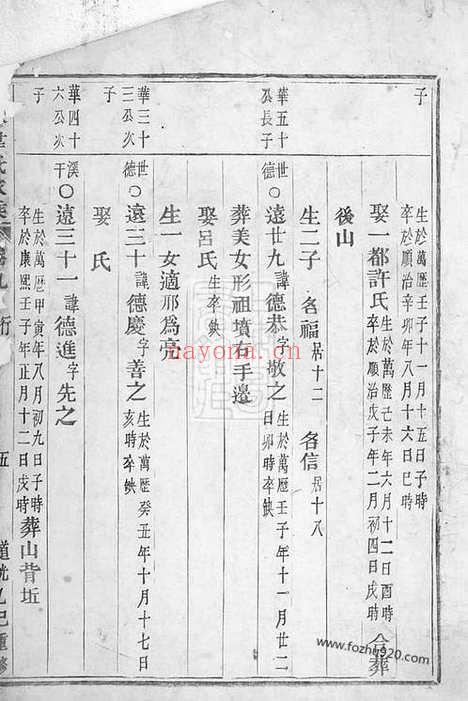 子
生於萬歷壬子年十一月十五日子時
卒於順治辛卯年八月十六日巳時
娶一都許氏
生於萬歷己未年六月十二日酉時
卒於順治戊子年二月初四日戌時
合葬
後山
生二子
名福 居十二
名信 居十八
華五十
公長子
世德○遠廿九
諱德恭字敬之
生於萬歷壬子年十一月廿二
日卯時卒缺
葬美女形祖墳右手邊
娶呂氏 生卒缺
生一女適邢為亮
華三十
三公次
子
世德○遠三十
諱德慶字善之
生於萬歷癸丑年十月十七日
亥時卒缺
娶 氏
華四十
六公次
子
溪干○遠三十一
諱德進字先之
生於萬歷甲寅年八月初九日子時
卒於康熙壬子年正月十二日戌時
葬山背坵
行
五
道光乙巳重修
nayona.cn
www.fozhu920.com